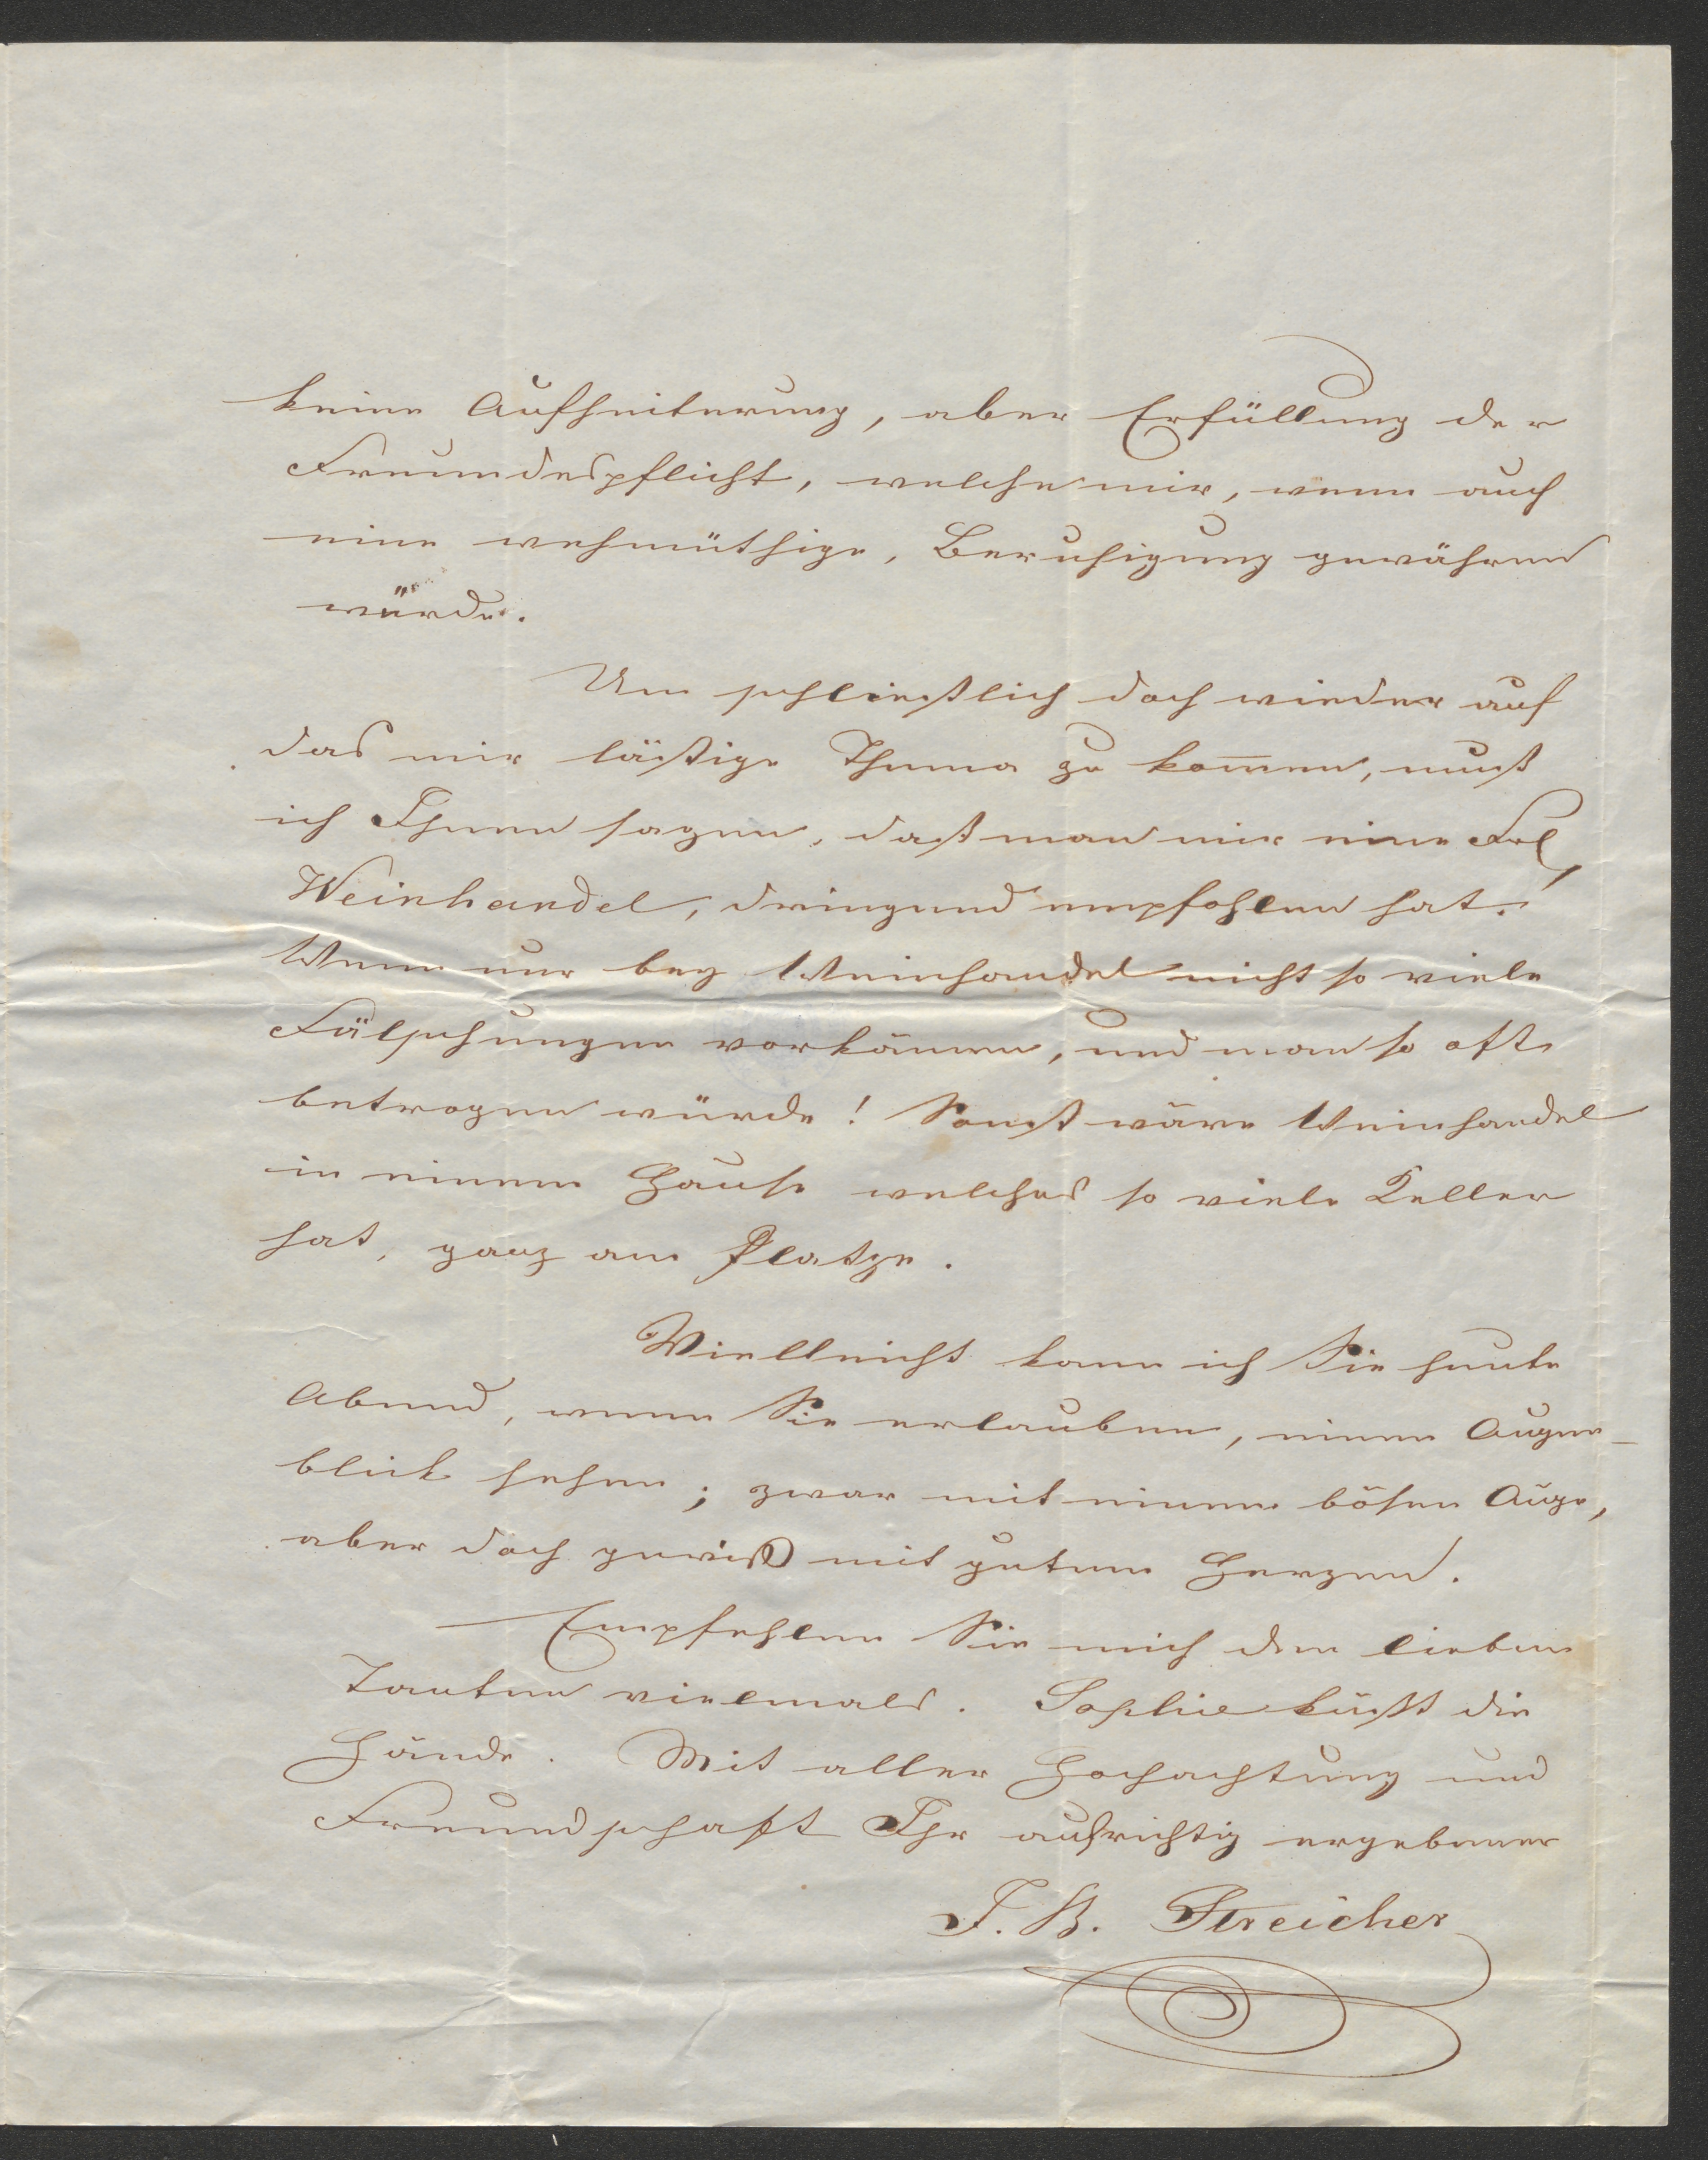 keine Aufheiterung, aber Erfüllung der
Freundespflicht, welche mir, wenn auch
eine wehmüthige, Beruhigung gewähren
würde.
Um schließlich doch wieder auf
das mir läßtige Thema zu kom̅en, muß
ich Ihnen sagen, daß man mir eine Frl
Weinhandel, dringend empfohlen hat!
Wenn nur bey Weinhandel nicht so viele
Fälschungen vorkämen, und man so oft
betrogen würde! Sonst wäre Weinhandel
in einem Hause welches so viele Keller
hat, ganz am Platze.
Vielleicht kann ich Sie heute
Abend, wenn Sie erlauben, einen Augen-
blick sehen; zwar mit einem bösen Auge,
aber doch gewiß mit gutem Herzen.
Empfehlen Sie mich den lieben
Tanten vielmals. Sophie küßt die
Hände. Mit aller Hochachtung und
Freundschaft Ihr aufrichtig ergebener
J. B. Streicher